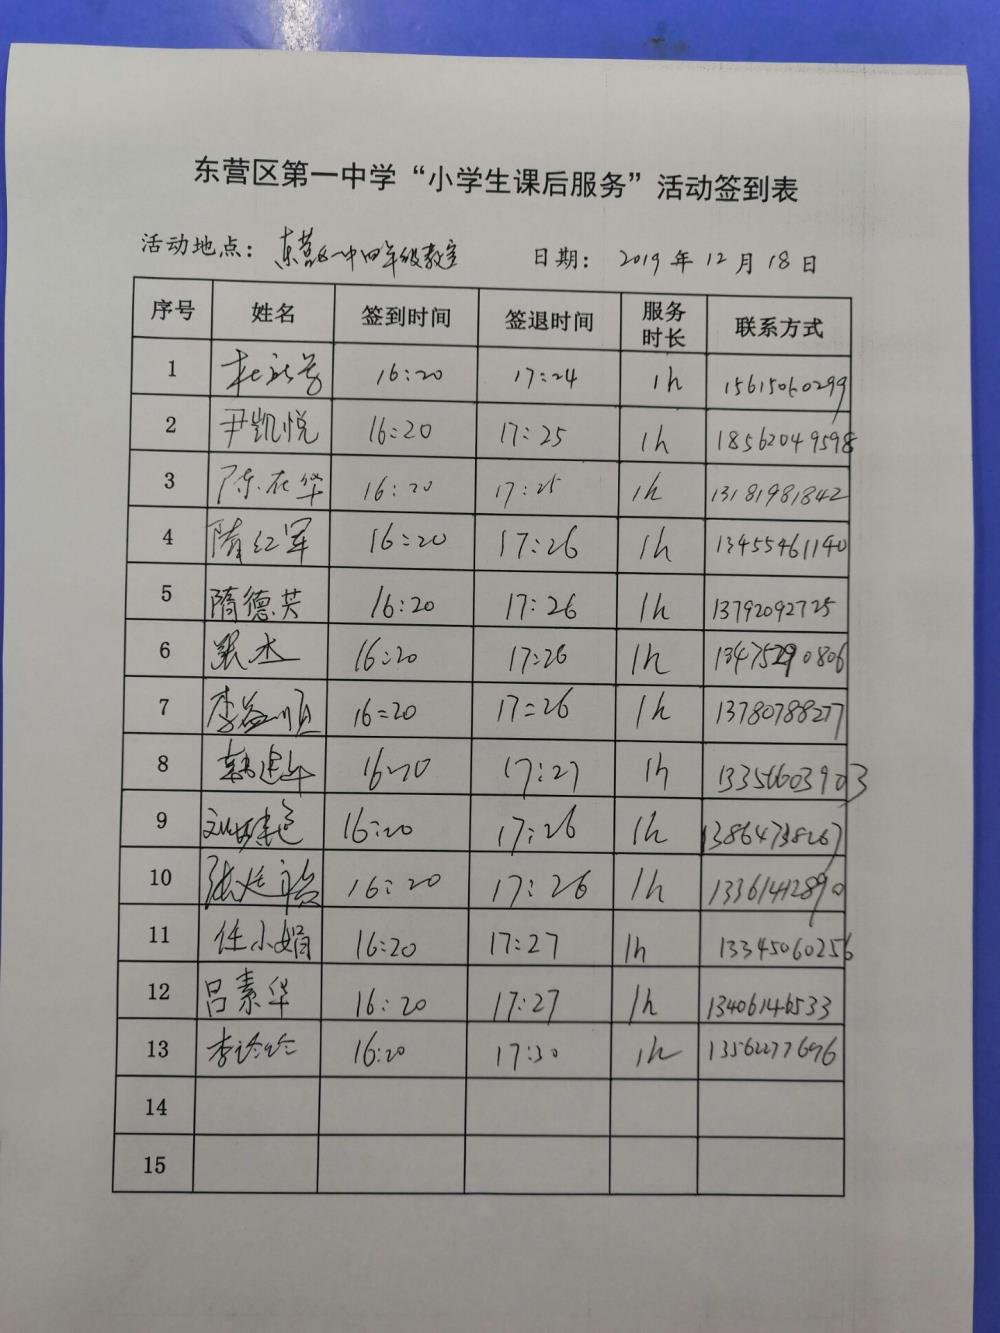 东营区第一中学“小学生课后服务”活动签到表
活动地点：东营区一中四年级教室 日期：2019年12月18日
序号 姓名 签到时间 签退时间 服务时长 联系方式
1 16:20 17:24 1h 15615060299
2 尹凯悦 16:20 17:25 1h 18562049598
3 陈在华 16:20 17:25 1h 13181981842
4 隋红军 16:20 17:26 1h 13455461140
5 隋德英 16:20 17:26 1h 13792092725
6 16:20 17:26 1h 13475290806
7 李益顺 16:20 17:26 1h 13780788277
8 韩建华 16:20 17:27 1h 13356603903
9 16:20 17:26 1h 13864738267
10 16:20 17:26 1h 13361412890
11 任小娟 16:20 17:27 1h 13345060256
12 吕素华 16:20 17:27 1h 13406146533
13 李玲玲 16:20 17:30 1h 13562277696
14
15